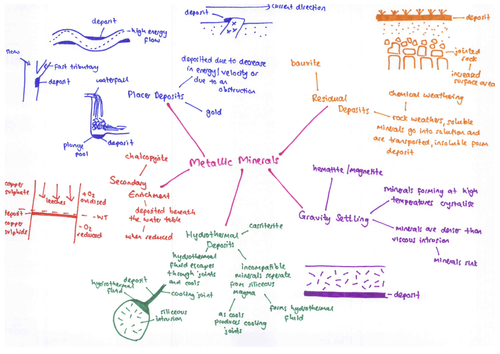 Metallic Minerals
Placer Deposits
deposited due to decrease
in energy/velocity or
due to an
obstruction
gold
deposit
high energy
flow
slow
fast tributary
deposit
waterfall
plunge
pool
deposit
deposit
current direction
Residual
Deposits
bauxite
chemical weathering
rock weathers, soluble
minerals go into solution and
are transported, insoluble form
deposit
deposit
jointed
rock
increased
surface area
Gravity Settling
hematite/magnetite
minerals forming at high
temperatures crystalise
minerals are denser than
viscous intrusion
minerals sink
deposit
Hydrothermal
Deposits
cassiterite
incompatible
minerals seperate
from siliceous
magma
forms hydrothermal
fluid
as cools
produces cooling
joints
hydrothermal
fluid escapes
through joints
and cools
deposit
hydrothermal
fluid
cooling joint
siliceous
intrusion
Secondary
Enrichment
chalcopyrite
deposited beneath
the water table
when reduced
copper
sulphate
leeches
+O₂
oxidised
deposit
WT
copper
sulphide
-O₂
reduced